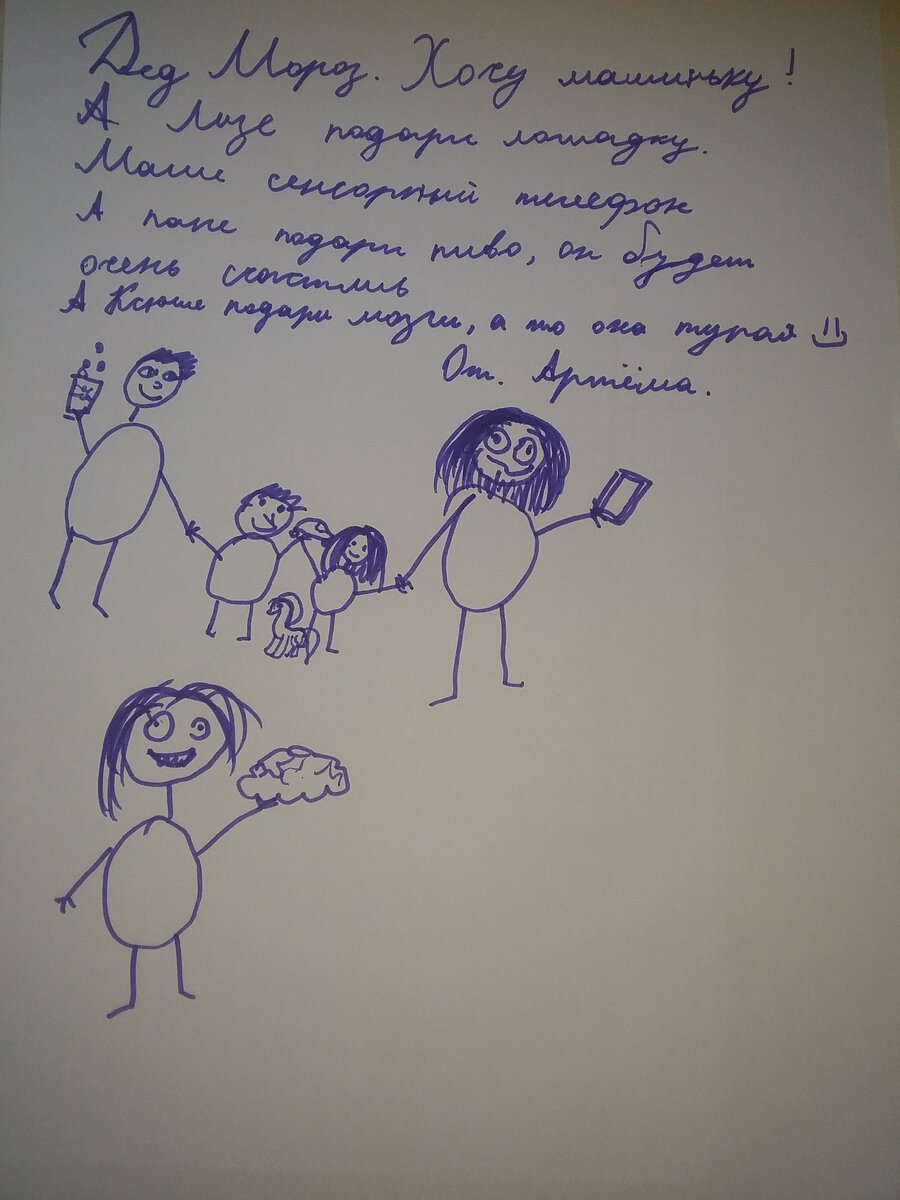 Дед Мороз. Хочу машиньку!
А Лизе подари лошадку.
Маше сенсорный телефон
А папе подари пиво, он будет
очень счастлив
А Ксюше подари мозги, а то она тупая
От. Артёма.